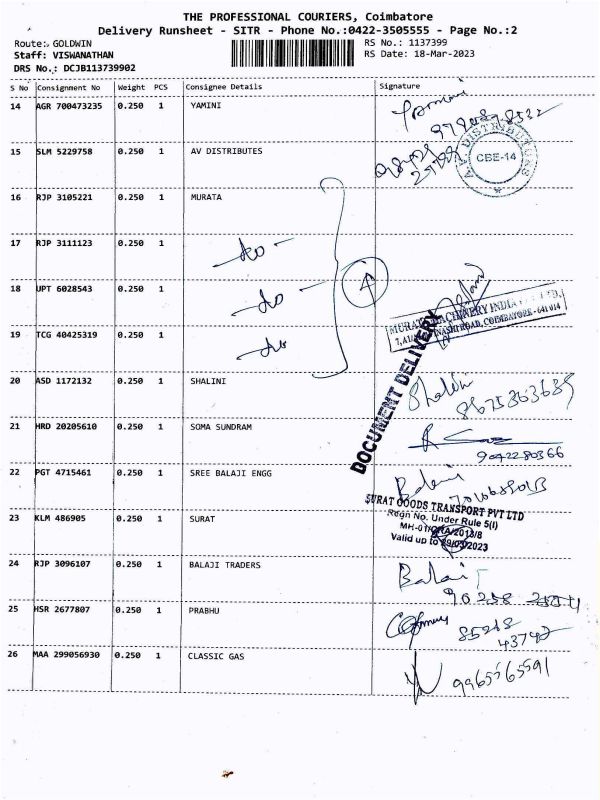 THE PROFESSIONAL COURIERS, Coimbatore
Delivery Runsheet - SITR - Phone No.:0422-3505555 - Page No.:2
Route: GOLDWIN
RS No.: 1137399
Staff: VISWANATHAN
RS Date: 18-Mar-2023
DRS No.: DCJB113739902
S No Consignment No Weight PCS Consignee Details Signature
14 AGR 700473235 0.250 1 YAMINI
15 SLM 5229758 0.250 1 AV DISTRIBUTES
A.V. DISTRIBUTIONS
CBE-14
16 RJP 3105221 0.250 1 MURATA
17 RJP 3111123 0.250 1
18 UPT 6028543 0.250 1
4
MURATA MACHINERY INDIA LTD.,
ROAD, COIMBATORE - 641 014
19 TCG 40425319 0.250 1
DOCUMENT DELIVERY
20 ASD 1172132 0.250 1 SHALINI
Shalini
8675363639
21 HRD 20205610 0.250 1 SOMA SUNDRAM
9042280366
22 PGT 4715461 0.250 1 SREE BALAJI ENGG
Balaji
SURAT GOODS TRANSPORT PVT LTD
Regn No. Under Rule 5(I)
23 KLM 486905 0.250 1 SURAT
Valid up to 29/03/2023
24 RJP 3096107 0.250 1 BALAJI TRADERS
Balaji
25 HSR 2677807 0.250 1 PRABHU
85248
43742
26 MAA 299056930 0.250 1 CLASSIC GAS
9965565591